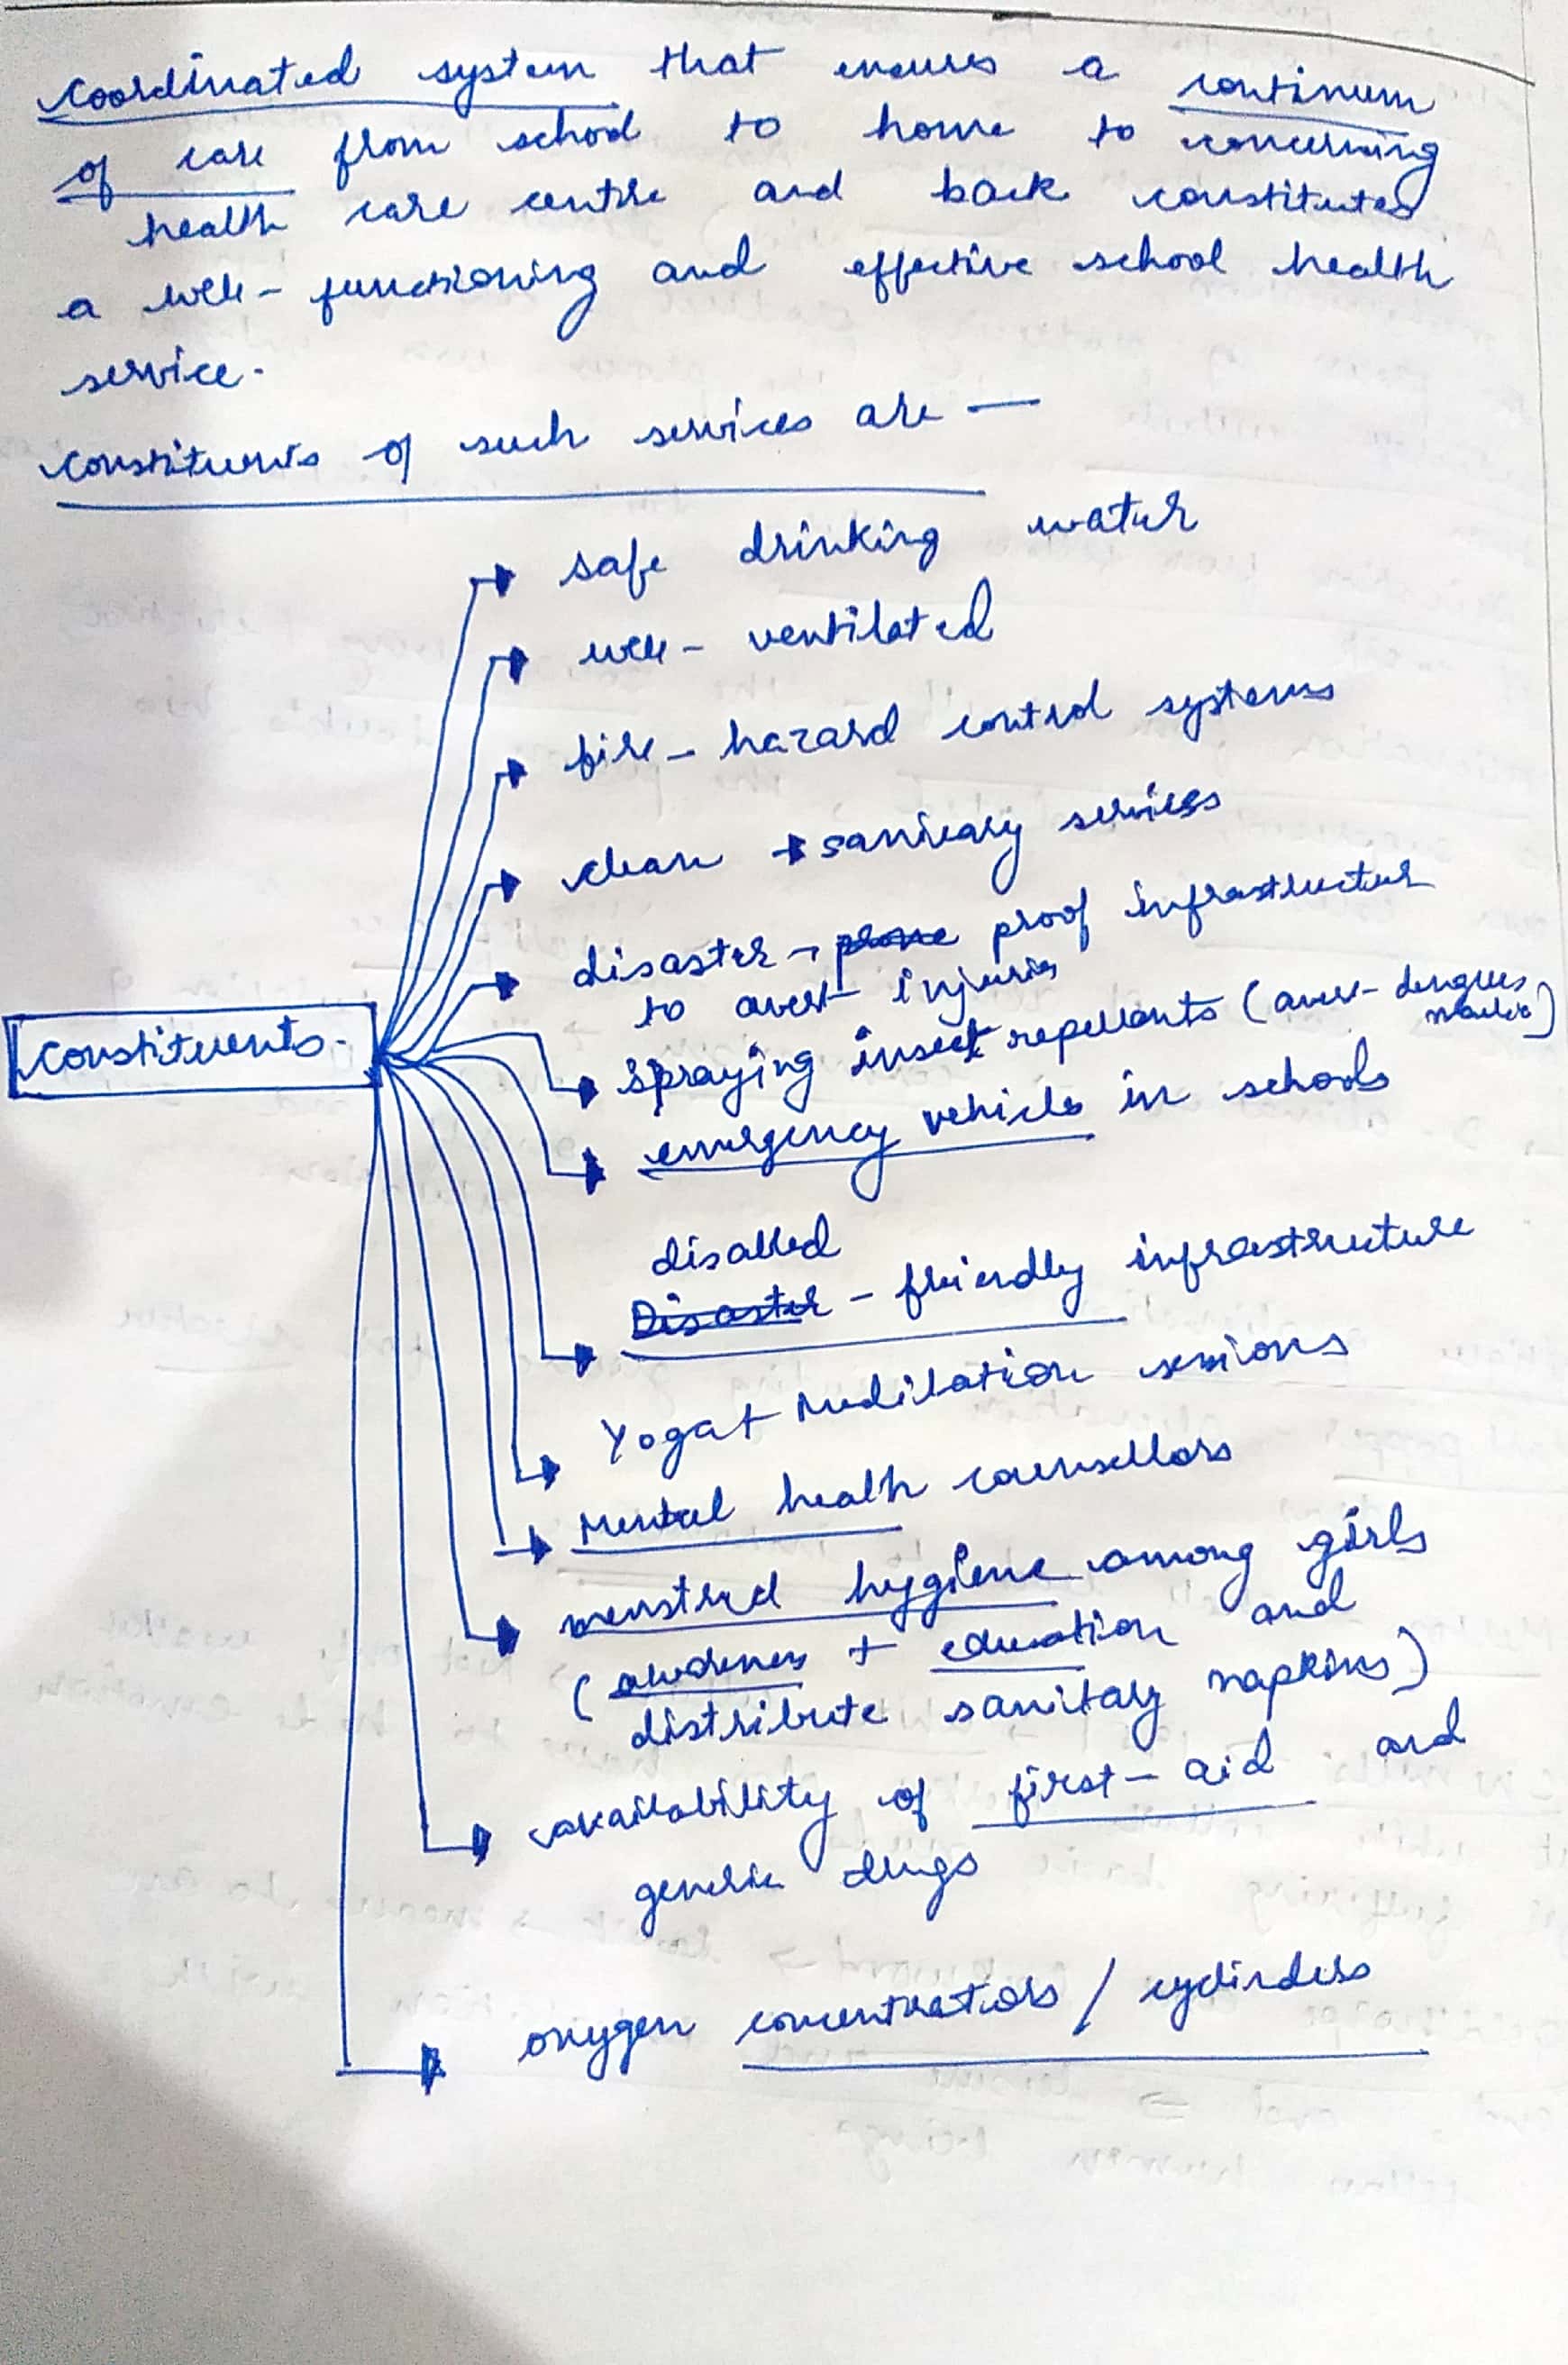 coordinated system that ensures a continum
of care from school to home to concerning
health care centre and back constitutes
a well-functioning and effective school health
service.
constituents of such services are —
safe drinking water
well-ventilated
fire-hazard control systems
clean + sanitary services
disaster-prone proof infrastructur
to avert injuries
spraying insect repellants (avert-dengues,
malaria)
emergency vehicle in schools
constituents.
disabled
Disaster - friendly infrastructure
Yoga + Meditation sessions
Mental health counsellors
menstral hygiene among girls
(awareness + education and
distribute sanitary napkins)
availability of first-aid and
generic drugs
oxygen concentrators / cyclinders